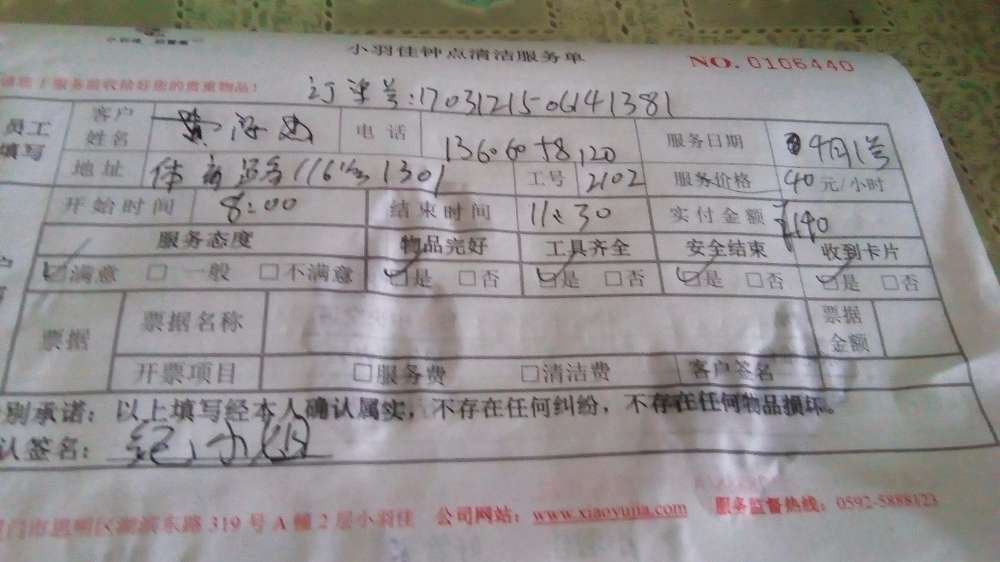 小羽佳钟点清洁服务单 NO. 0106440
服务前收拾好您的贵重物品!
订单号:1703121506141381
员工填写 客户姓名 黄 电话 服务日期 4月1号
地址 体育路 1301 工号 2102 服务价格 40元/小时
开始时间 8:00 结束时间 11:30 实付金额 ¥140
服务态度 物品完好 工具齐全 安全结束 收到卡片
☑满意 □一般 □不满意 ☑是 □否 ☑是 □否 ☑是 □否 ☑是 □否
票据 票据名称 票据金额
开票项目 □服务费 □清洁费 客户签名
别承诺:以上填写经本人确认属实,不存在任何纠纷,不存在任何物品损坏。
认签名:
门市思明区湖滨东路319号A幢2层小羽佳 公司网站:www.xiaoyujia.com 服务监督热线:0592-5888123